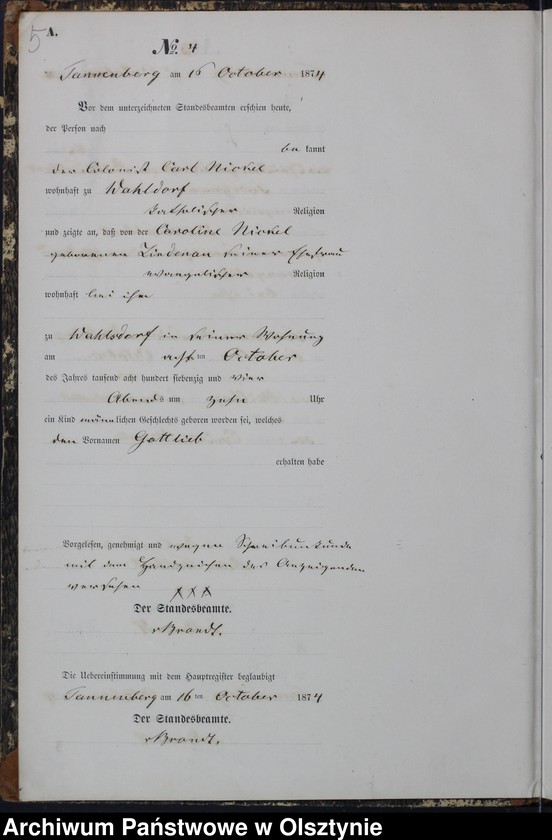 5
A.
No. 4
Tannenberg am 16 October 1874
Vor dem unterzeichneten Standesbeamten erschien heute,
der Person nach
be kannt
der Colonist Carl Nickel
wohnhaft zu Wahlsdorf
katholischer Religion
und zeigte an, daß von der Caroline Nickel
geborenen Lindenau seiner Ehefrau
evangelischer Religion
wohnhaft bei ihm
zu Wahlsdorf in seiner Wohnung
am acht ten October
des Jahres tausend acht hundert siebenzig und vier
Abends um zehn Uhr
ein Kind männlichen Geschlechts geboren worden sei, welches
den Vornamen Gottlieb
erhalten habe
Vorgelesen, genehmigt und wegen Schreibunkunde
mit dem Handzeichen des Anzeigenden
versehen XXX
Der Standesbeamte.
vBrandt.
Die Uebereinstimmung mit dem Hauptregister beglaubigt
Tannenberg am 16 ten October 1874
Der Standesbeamte.
vBrandt.
Archiwum Państwowe w Olsztynie